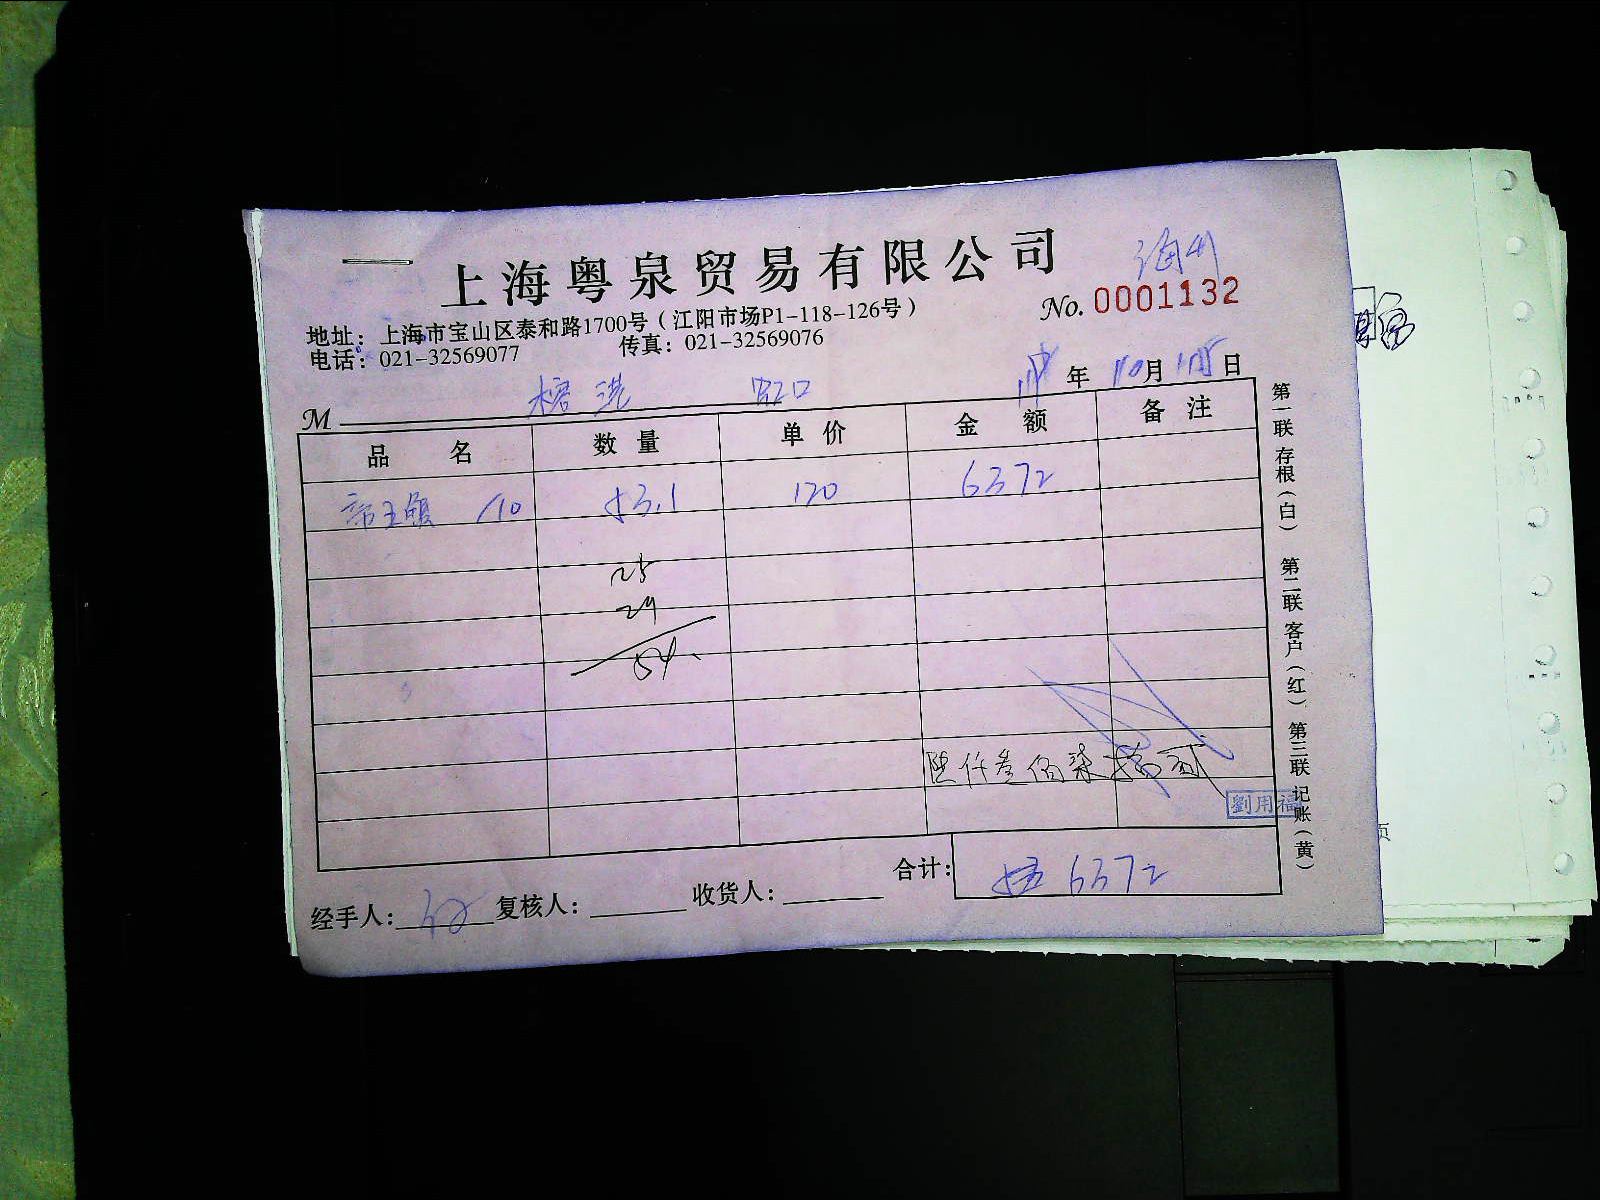 上海粤泉贸易有限公司
No. 0001132
地址：上海市宝山区泰和路1700号（江阳市场P1-118-126号）
电话：021-32569077 传真：021-32569076
年 10月 日
M 虹口
品 名 数 量 单 价 金 额 备 注
帝王 /10 53.1 120 6372
25
29
54.
陆仟叁佰柒拾
劉用福
合计： 6372
经手人： 复核人： 收货人：
第一联 存根（白） 第二联 客户（红） 第三联 记账（黄）